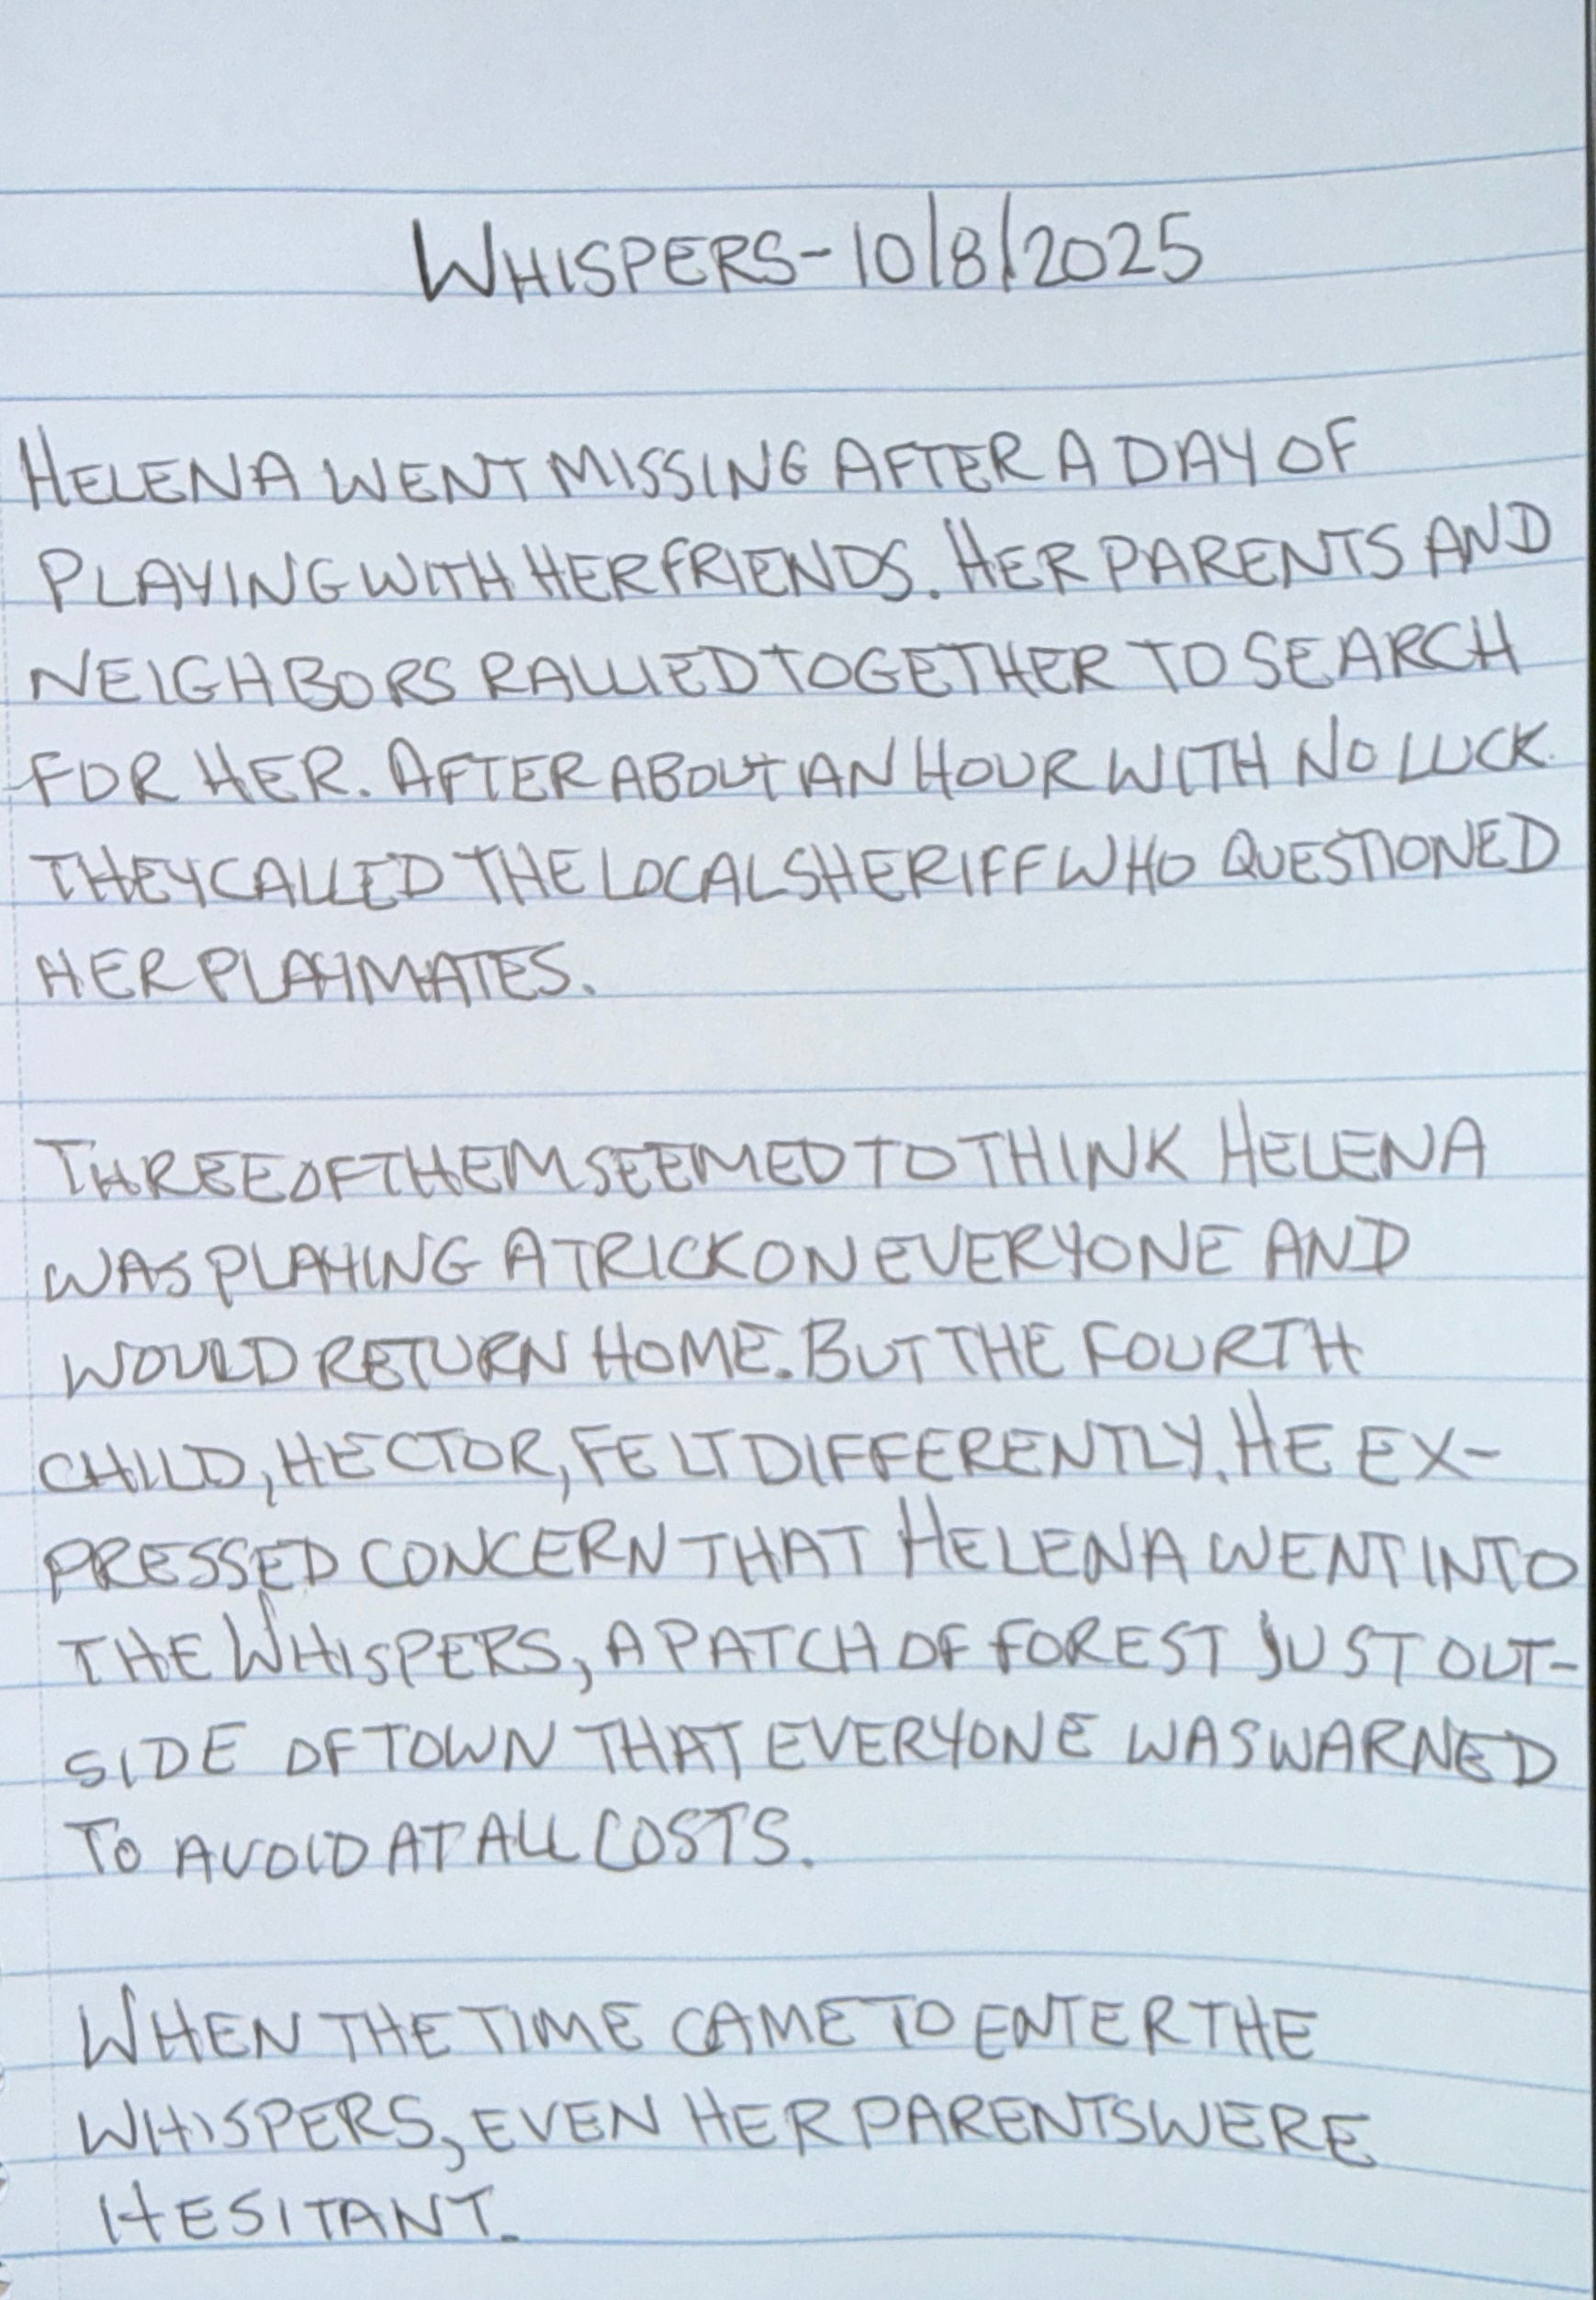 WHISPERS - 10/8/2025
HELENA WENT MISSING AFTER A DAY OF
PLAYING WITH HER FRIENDS. HER PARENTS AND
NEIGHBORS RALLIED TOGETHER TO SEARCH
FOR HER. AFTER ABOUT AN HOUR WITH NO LUCK
THEY CALLED THE LOCAL SHERIFF WHO QUESTIONED
HER PLAYMATES.
THREE OF THEM SEEMED TO THINK HELENA
WAS PLAYING A TRICK ON EVERYONE AND
WOULD RETURN HOME. BUT THE FOURTH
CHILD, HECTOR, FELT DIFFERENTLY. HE EX-
PRESSED CONCERN THAT HELENA WENT INTO
THE WHISPERS, A PATCH OF FOREST JUST OUT-
SIDE OF TOWN THAT EVERYONE WAS WARNED
TO AVOID AT ALL COSTS.
WHEN THE TIME CAME TO ENTER THE
WHISPERS, EVEN HER PARENTS WERE
HESITANT.